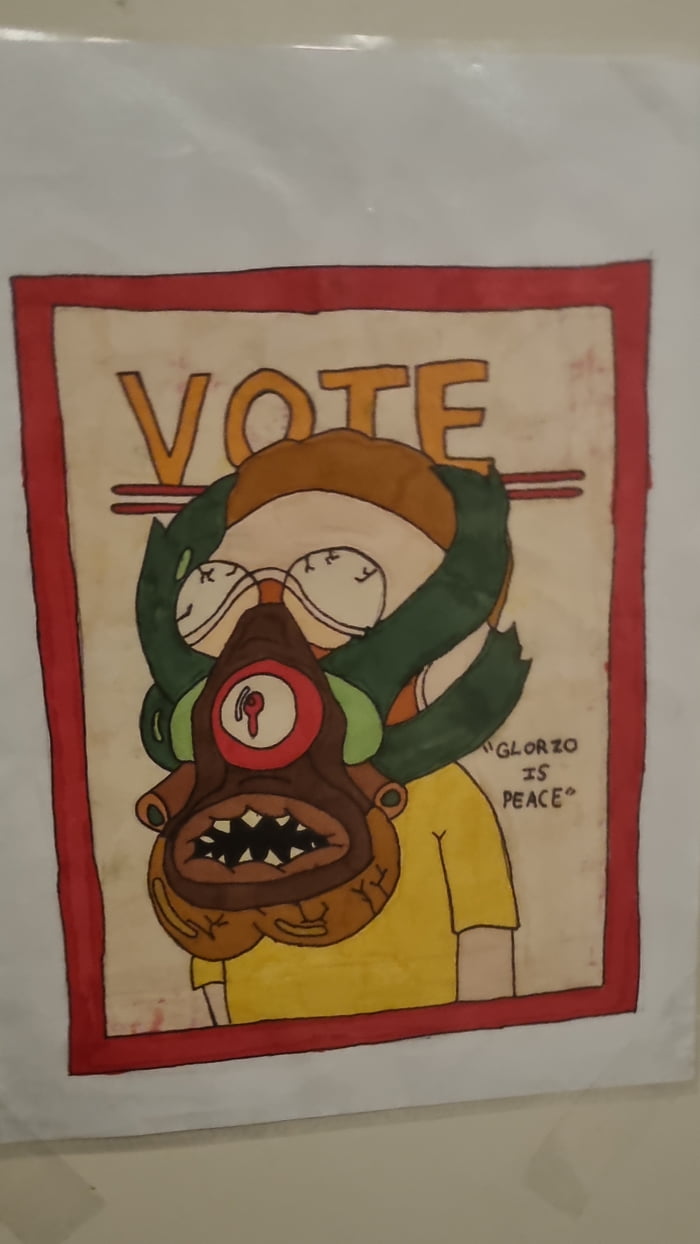 VOTE
"GLORZO
IS
PEACE"